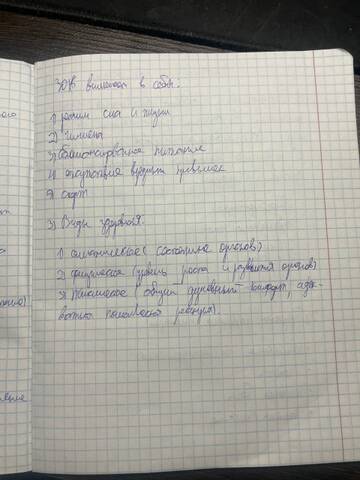 ЗОЖ включает в себя:
1) режим сна и жизни
2) гигиена
3) сбалансированное питание
4) отсутствие вредных привычек
5) спорт
3) Виды здоровья:
1) соматическое (состояние органов)
2) физическое (уровень роста и развития органов)
3) психическое (общий душевный комфорт, адек-
ватная поведенческая реакция).